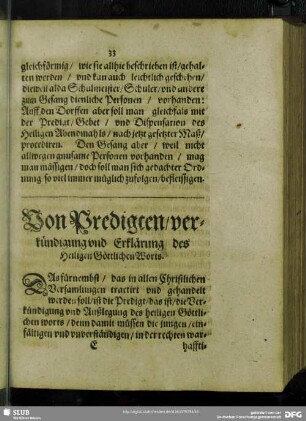 33
gleichförmig / wie sie allhie beschrieben ist / gehal-
ten werden / vnd kan auch leichtlich geschehen /
dieweil alda Schulmeister / Schuler / vnd andere
zum Gesang dienliche Personen / vorhanden:
Auff den Dorffen aber soll man gleichfals mit
der Predigt, Gebet / vnd Dispensation des
Heiligen Abendmahls / nach jetz gesetzter Maß /
procediren. Den Gesang aber / weil nicht
allwegen gnusame Personen vorhanden / mag
man mässigen / doch soll man sich gedachter Ord-
nung so viel immer müglich zufolgen / befleissigen.
Von Predigten / ver-
kündigung vnd Erklärung des
Heiligen Göttlichen Worts.
DAs fürnembst / das in allen Christlichen
Versamlungen tractirt vnd gehandelt
werden soll / ist die Predigt / das ist / die Ver-
kündigung vnd Außlegung des heiligen Göttli-
chen worts / denn damit müssen die jungen / ein-
fältigen vnd vnverständigen / in der rechten war-
E hafftl-
SLUB
Wir führen Wissen.
DFG